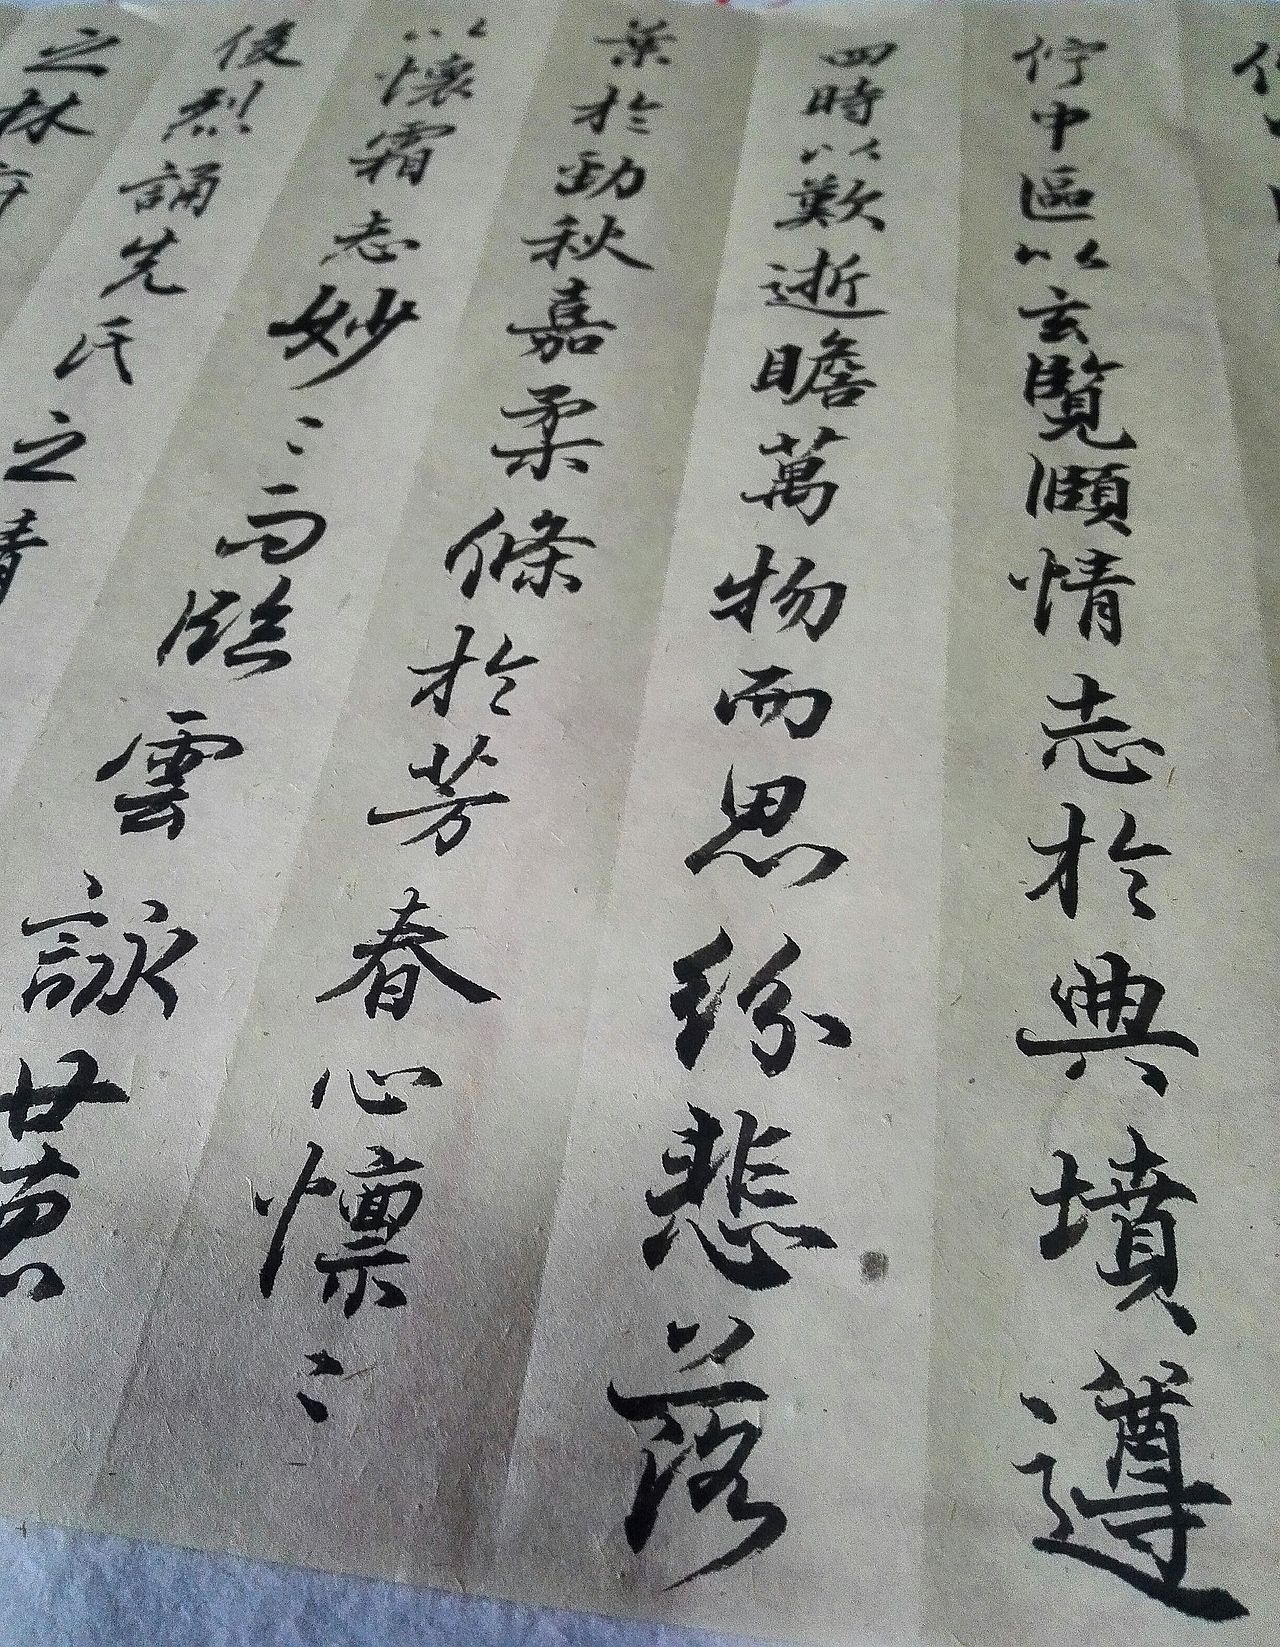 佇中區以玄覽頤情志於典墳遵
四時以歎逝瞻萬物而思紛悲落
葉於勁秋嘉柔條於芳春心懍〻
以懷霜志妙〻而臨雲詠世
俊烈誦先氏之清
之林府